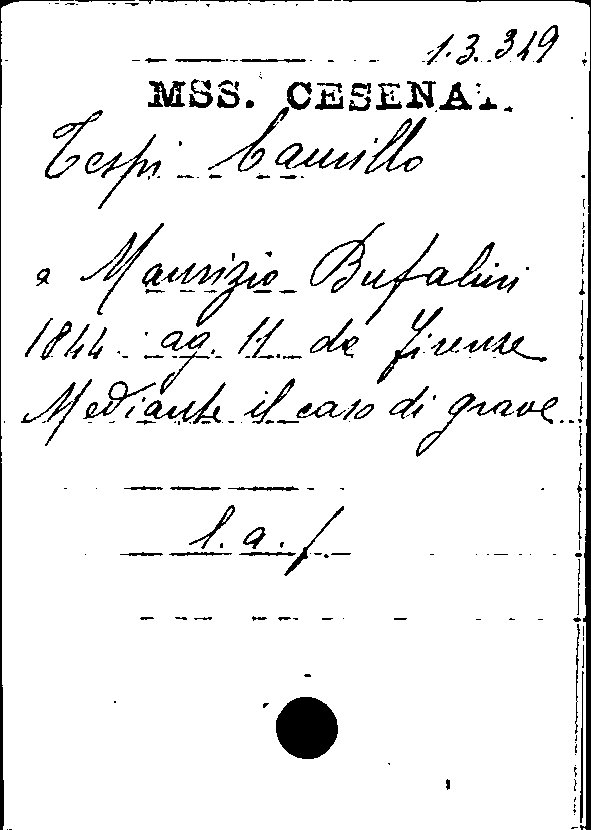 1.3.349
MSS. CESENAT.
Tespi Camillo
a Maurizio Bufalini
1844 ag. 11. da Firenze
Mediante il caso di grave
l. a. f.